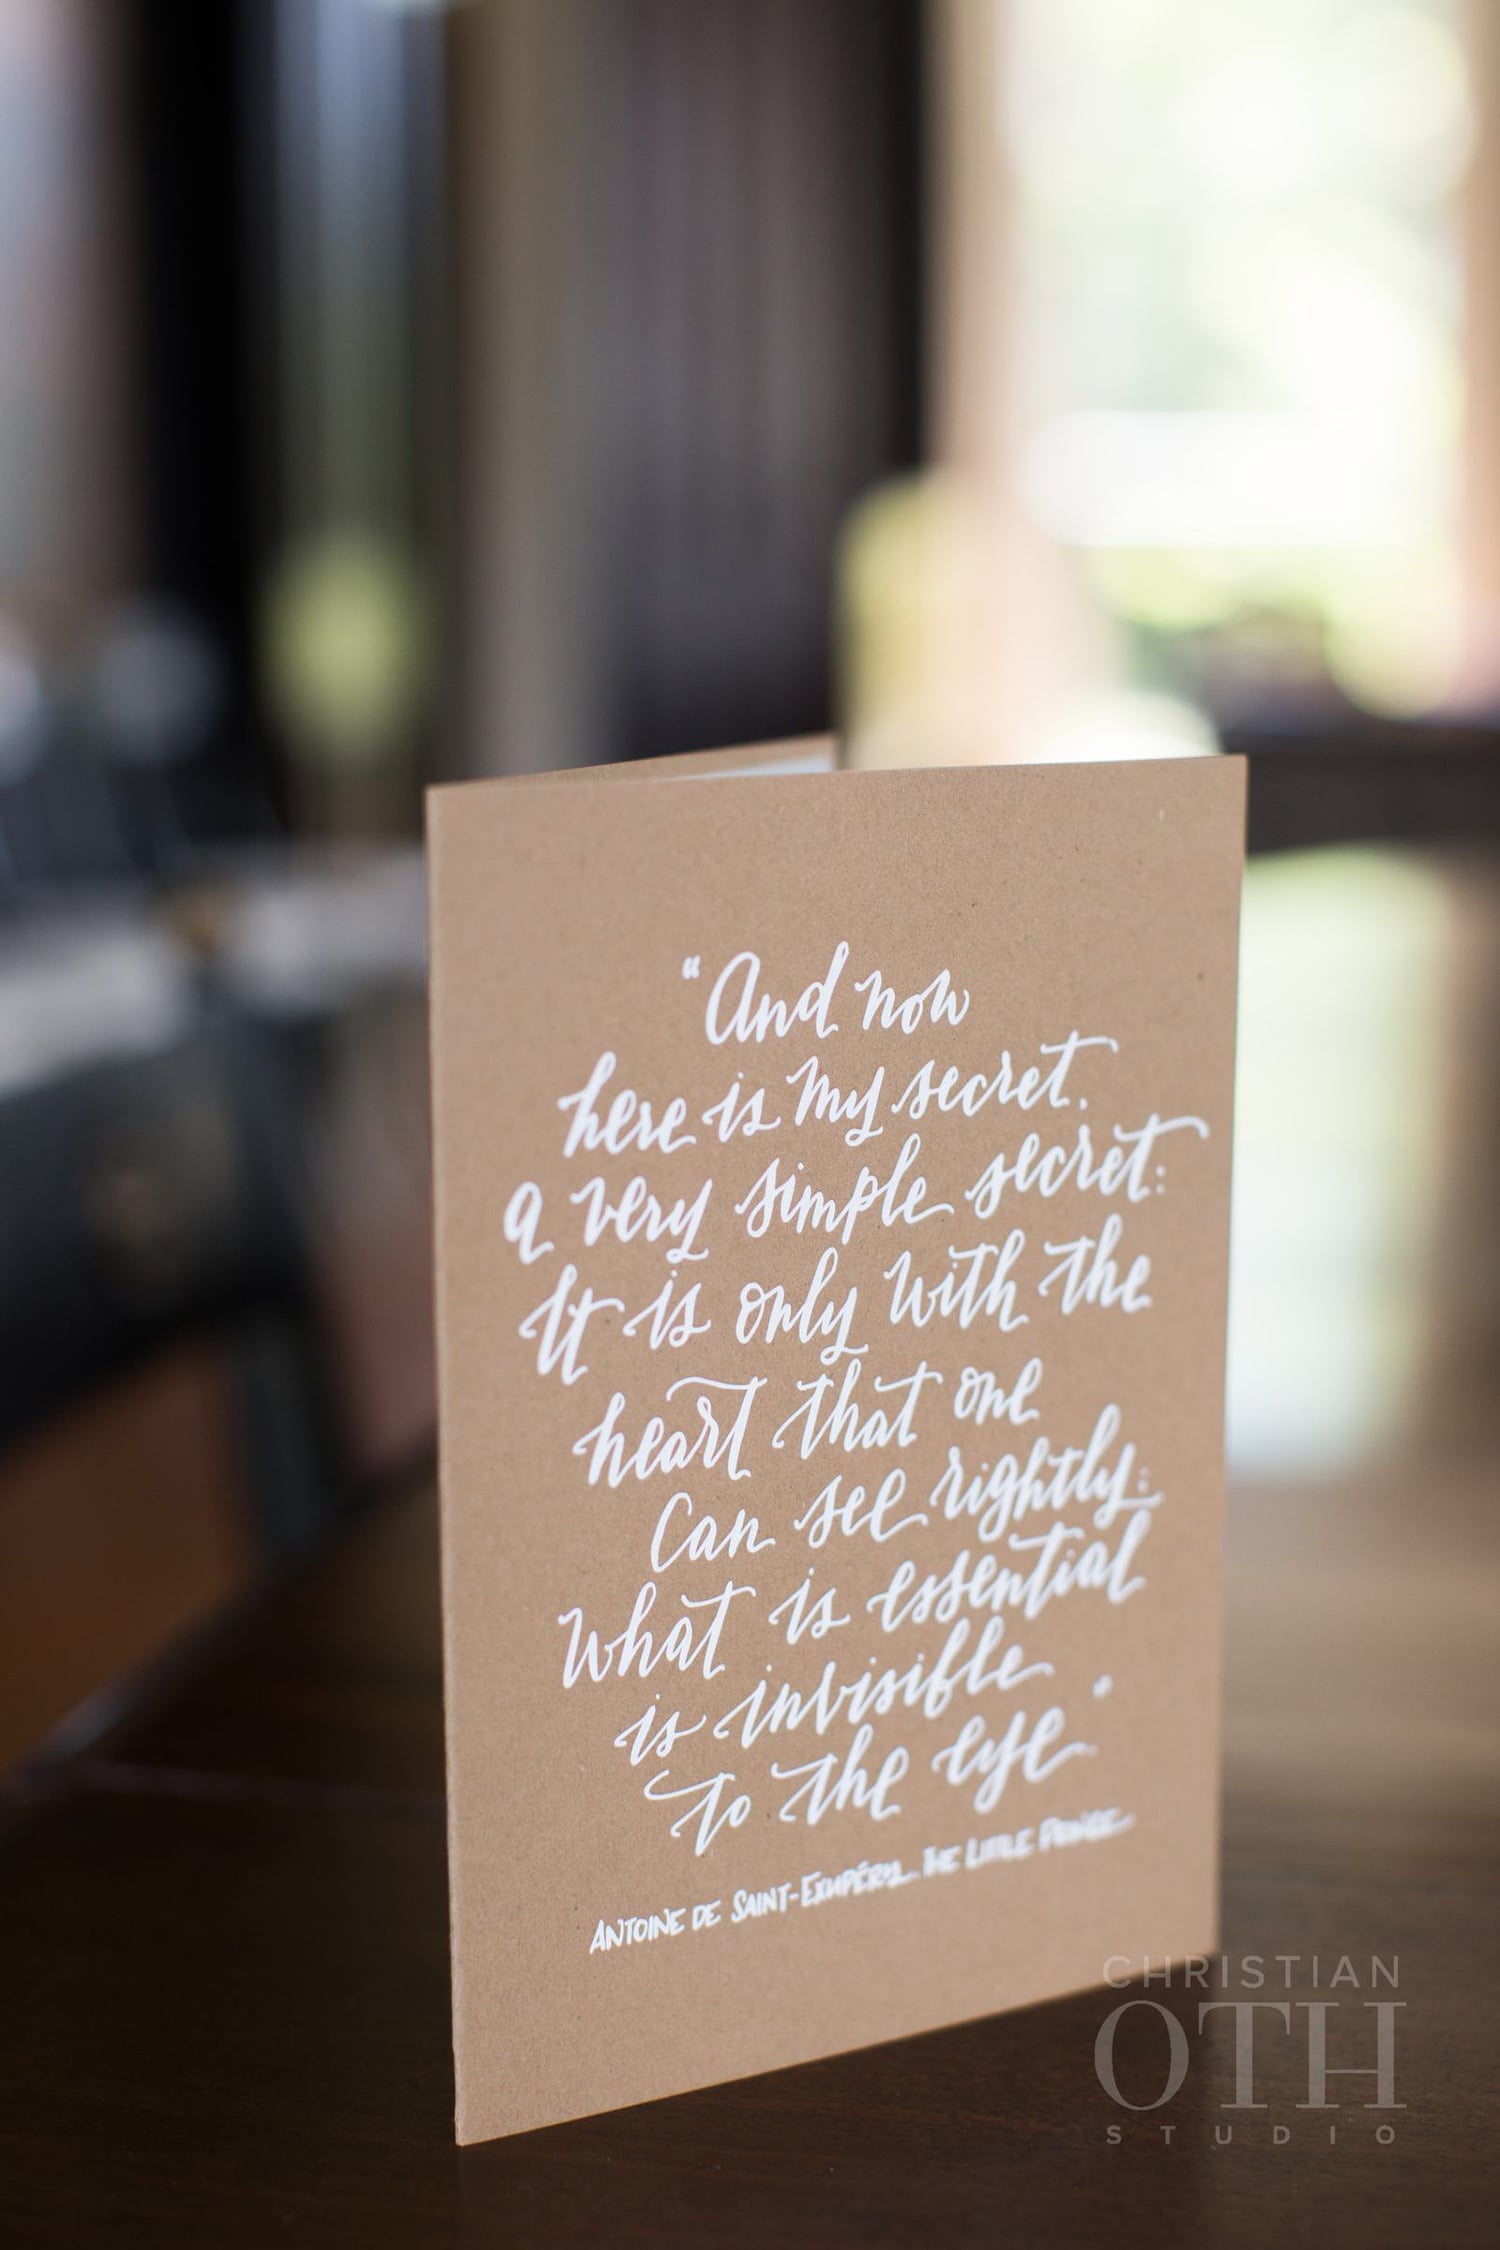 “And now
here is my secret,
a very simple secret:
It is only with the
heart that one
Can see rightly;
What is essential
is invisible
to the eye."
ANTOINE DE SAINT-EXUPÉRY, THE LITTLE PRINCE
CHRISTIAN
OTH
STUDIO